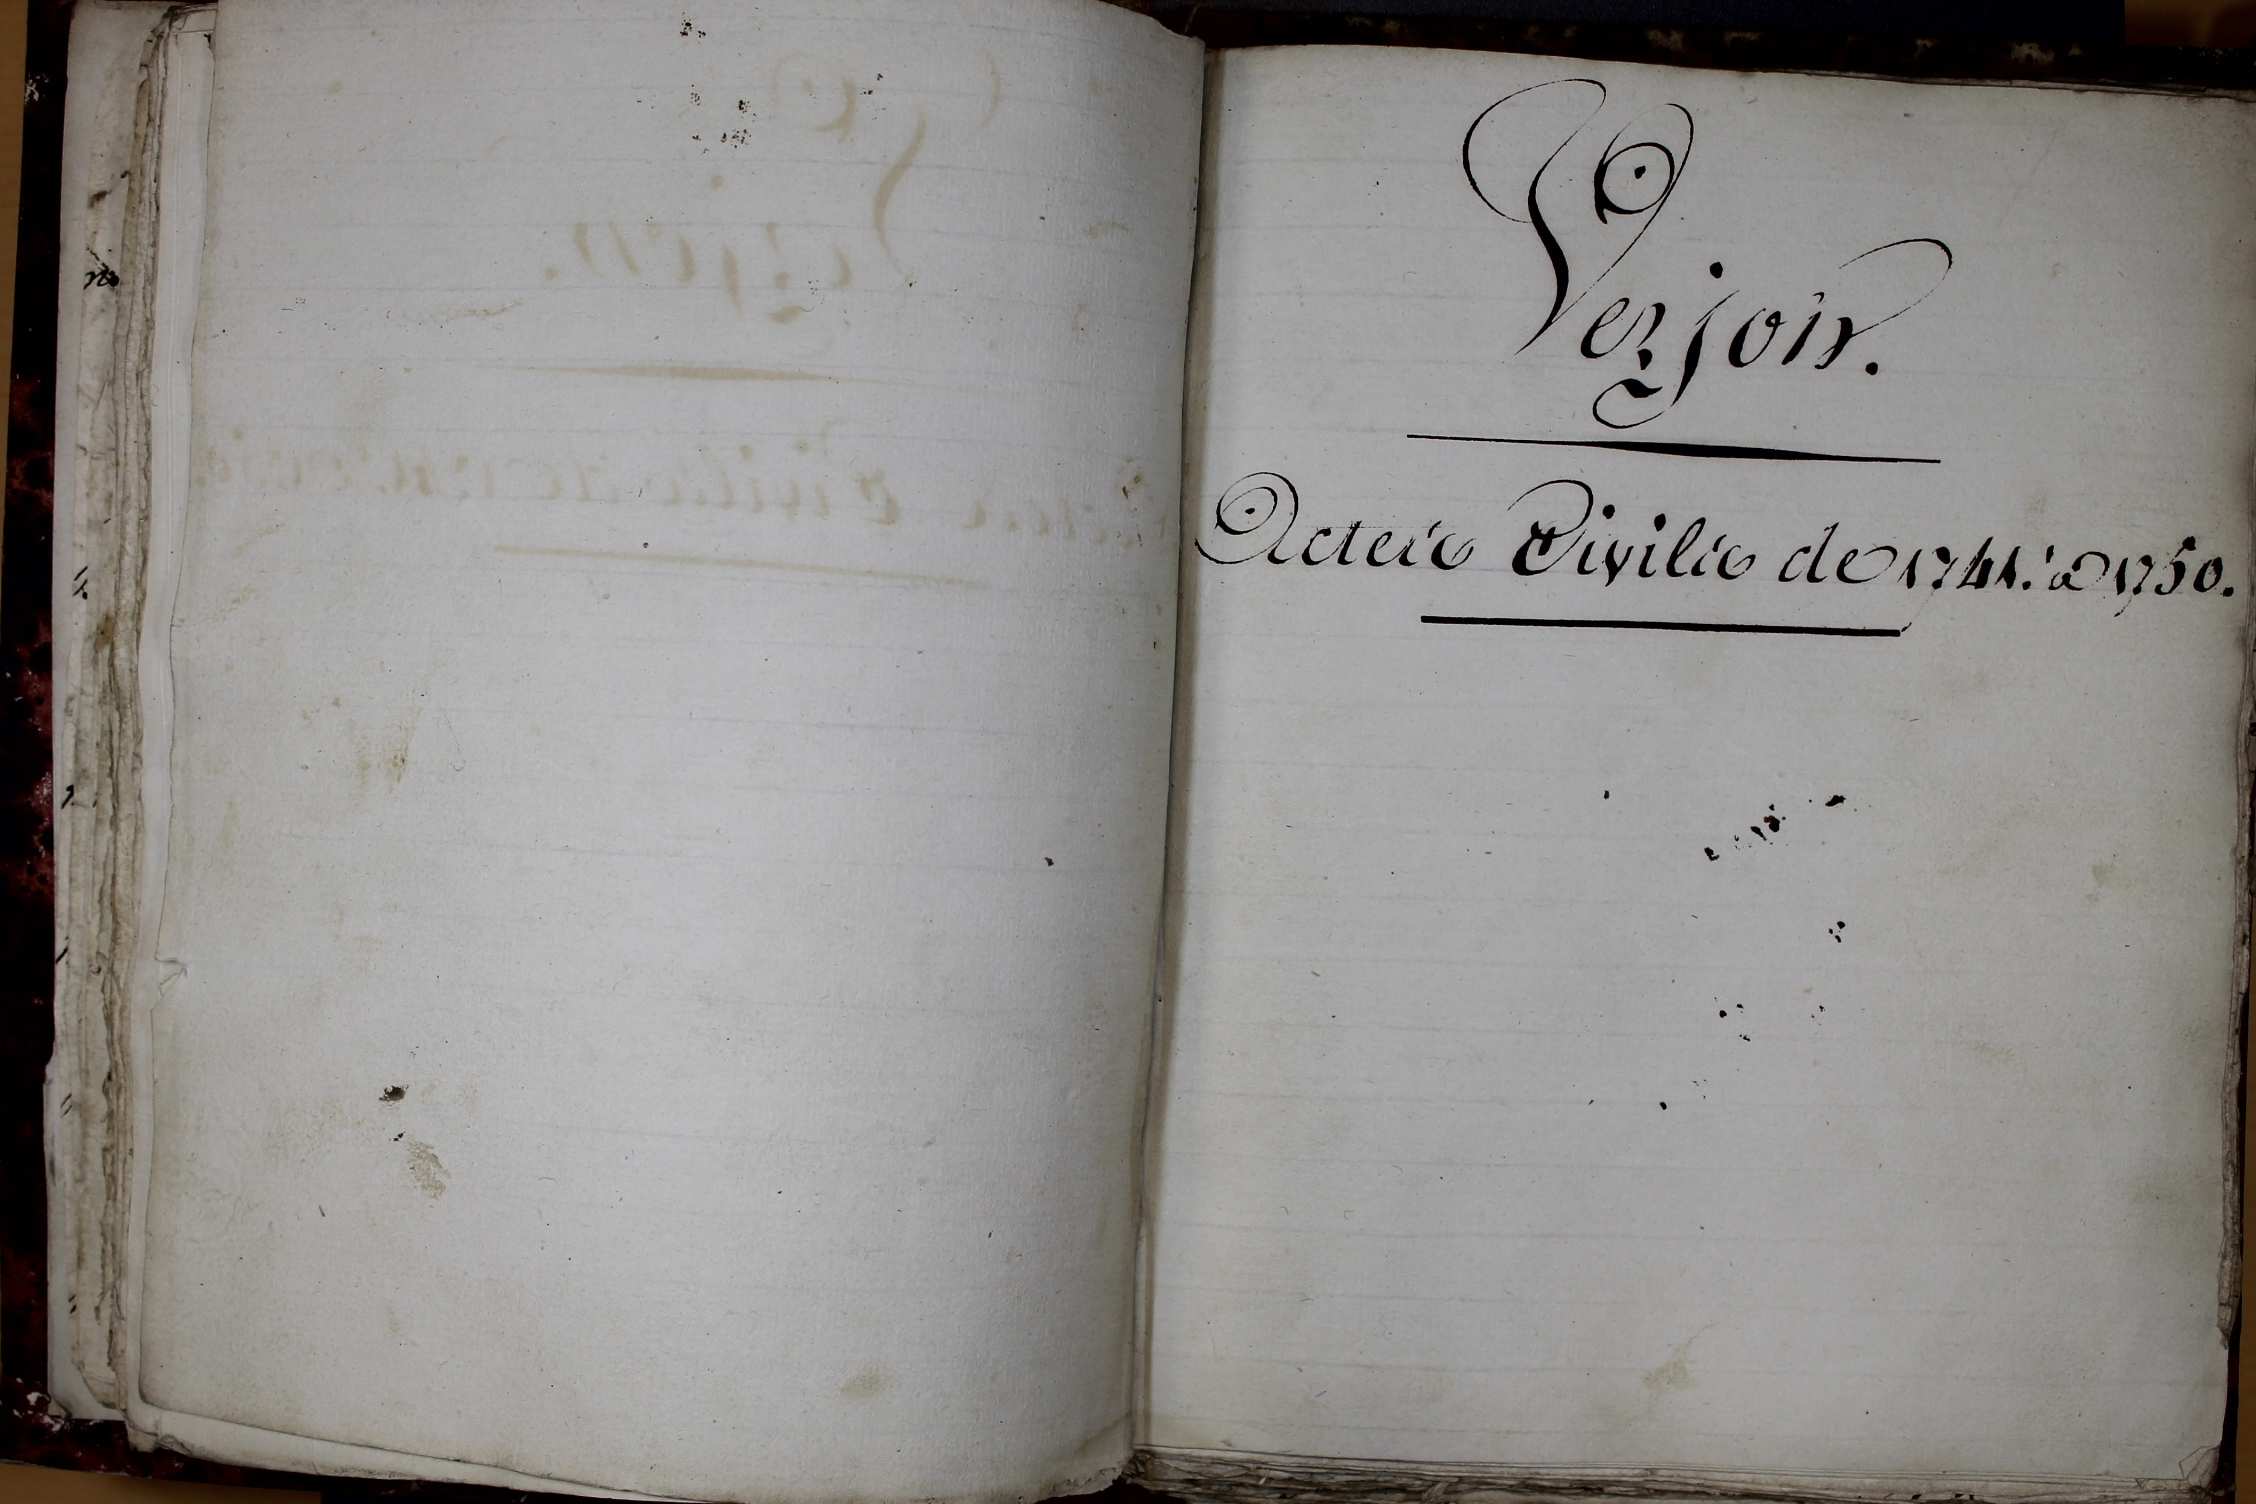 Verjon.
Actes Civils de 1741. à 1750.